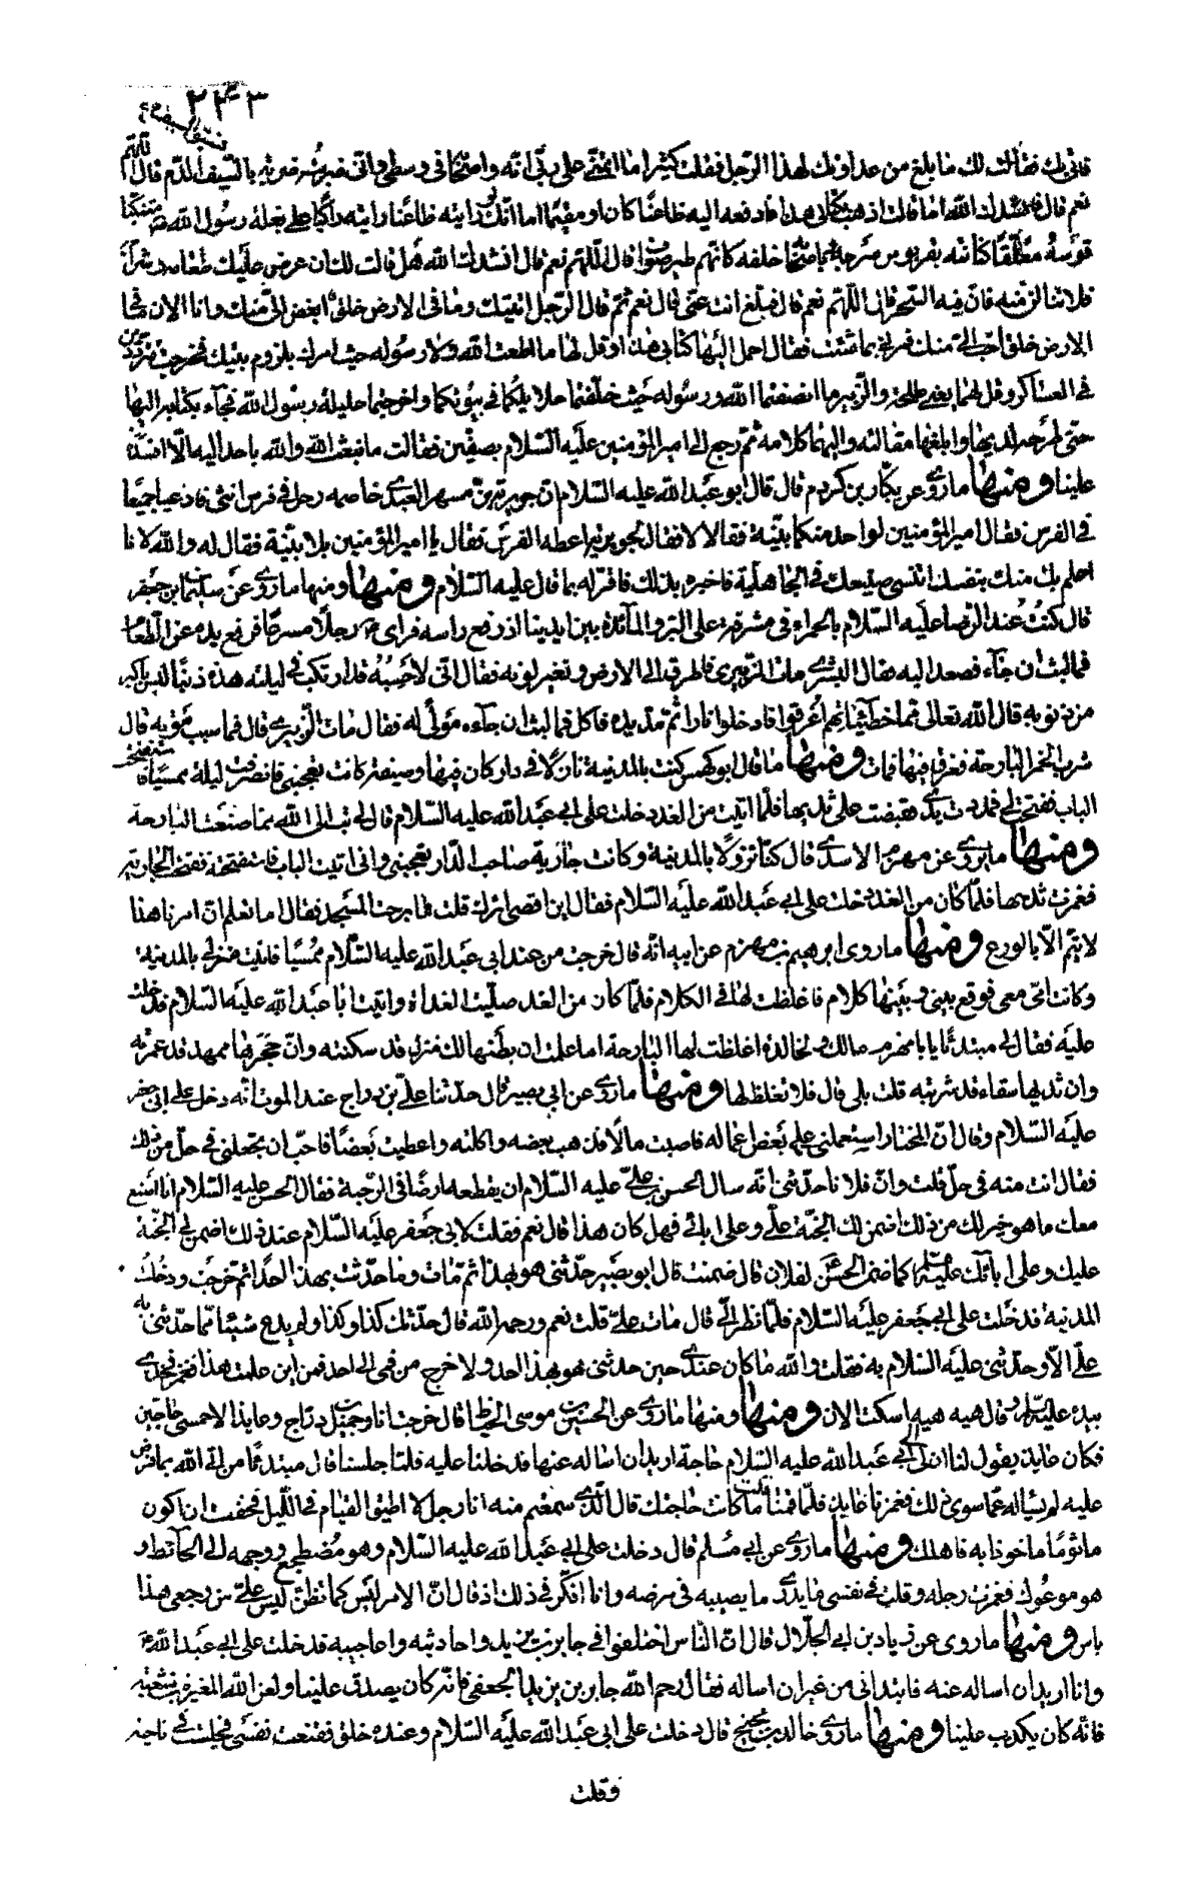 ٢٤٣
فاتى بك فقالت لك ما بلغ من عداوتك لهذا الرجل فقلت كثيرا ما اتمنى على ربى انه واصحابه فى وسطى وانى ضربت ضربة بالسيف الدم قال اللهم
نعم قال فنشدتك الله اما قالت اذهب بكتابى هذا فادفعه اليه ظاعنا كان او مقيما اما انك ان رايته ظاعنا رايته راكبا على بغلة رسول الله متنكبا
قوسه معلقا كنانته بقربوس سرجه اصحابه خلفه كانهم طير صواف قال اللهم نعم قال انشدك الله هل قالت لك ان عرض عليك طعامه وشرابه
فلا تنالن منه فان فيه السحر قال اللهم نعم قال فمبلغ انت عنى قال نعم ثم قال الرجل اتيتك وما فى الارض خلق ابغض الى منك وانا الان ما فى
الارض خلق احب الى منك فمرنى بما شئت فقال احمل اليها كتابى هذا وقل لها ما اطعت الله ولا رسوله حيث امرك بلزوم بيتك فخرجت تترددين
فى العساكر وقل لهما يعنى طلحة والزبير ما انصفتما الله ورسوله حيث خلفتما حلائلكما فى بيوتكما واخرجتما حليلة رسول الله فجاء بكتابه اليها
حتى طرحه لديها وابلغها مقالته واليهما كلامه ثم رجع الى امير المؤمنين عليه السلام بصفين فقالت ما نبعث الله والله باحد اليه الا افسده
علينا ومنها ما روى عن بكار بن كردم قال قال ابو عبد الله عليه السلام ان جويرية بن مسهر العبدى خاصمه رجل فى فرس انثى فادعيا جميعا
فى الفرس فقال امير المؤمنين لواحد منكما بينة فقالا لا فقال لجويرية اعطه الفرس فقال يا امير المؤمنين بلا بينة فقال له والله لانا
اعلم بك منك بنفسك اتنسى صنيعك فى الجاهلية فاخبره بذلك فاقر له بما قال عليه السلام ومنها ومنها ما روى عن سليمان بن جعفر
قال كنت عند الرضا عليه السلام بالحمراء فى مشرفة على البر والمائدة بين ايدينا اذ رفع راسه فراى رجلا مسرعا فرفع يده عن الطعام
فما لبث ان جاء فصعد اليه فقال البشرى مات الزبيرى فاطرق الى الارض وتغير لونه فقال انى لاحسبه قد ارتكب فى ليلته هذه ذنبا ليس باكبر
من ذنوبه قال الله تعالى مما خطيئاتهم اغرقوا فادخلوا نارا ثم مد يده فاكل فما لبث ان جاءه مولى له فقال مات الزبيرى قال فما سبب موته قال
شرب الخمر البارحة فغرق فيها فمات ومنها ما قال ابو كهمس كنت بالمدينة نازلا فى دار كان فيها وصيفة كانت تعجبنى فانصرفت ليلة ممسيا فاستفتحت
الباب ففتحت لى فمددت يدى فقبضت على ثديها فلما اتيت من الغد دخلت على ابى عبد الله عليه السلام قال لى تب الى الله بما صنعت البارحة
ومنها ما روى عن مهزم الاسدى قال كنا نزولا بالمدينة وكانت جارية صاحب الدار تعجبنى وانى اتيت الباب فاستفتحت ففتحت الجارية
فغمزت ثديها فلما كان من الغد دخلت على ابى عبد الله عليه السلام فقال اين اقصى اثرك قلت ما برحت المسجد فقال ما تعلم ان امرنا هذا
لا يتم الا بالورع ومنها ما روى ابرهيم بن مهزم عن ابيه انه قال خرجت من عند ابى عبد الله عليه السلام ممسيا فاتيت منزلى بالمدينة
وكانت امى معى فوقع بينى وبينها كلام فاغلظت لها فى الكلام فلما كان من الغد صليت الغداة واتيت ابا عبد الله عليه السلام فدخلت
عليه فقال لى مبتدئا يا با مهزم مالك ولخالدة اغلظت لها البارحة اما علمت ان بطنها لك منزل قد سكنته وان حجرها ممهد قد عمرته
وان ثديها سقاء قد شربته قلت بلى قال فلا تغلظ لها ومنها ما روى عن ابى بصير قال حدثنا على بن دراج عند الموت انه دخل على ابى جعفر
عليه السلام وقال ان المختار استعملنى على بعض اعماله فاصبت مالا فذهب بعضه واكلته واعطيت بعضا فاحب ان تجعلنى فى حل من ذلك
فقال انت منه فى حل قلت وان فلانا حدثنى انه سال الحسن بن على عليه السلام ان يقطعه ارضا فى الرحبة فقال الحسن عليه السلام انا اصنع
معك ما هو خير لك من ذلك اضمن لك الجنة على وعلى ابائى فهل كان هذا قال نعم فقلت لابى جعفر عليه السلام عند ذلك اضمن لى الجنة
عليك وعلى ابائك عليهم السلام كما ضمن الحسن لفلان قال ضمنت قال ابو بصير حدثنى هو بهذا ثم مات وما حدثت بهذا احدا ثم خرجت ودخلت
المدينة فدخلت على ابى جعفر عليه السلام فلما نظر الى قال مات على قلت نعم ورحمه الله قال حدثك كذا وكذا ولم يدع شيئا مما حدثنى به
على الا وحدثنى عليه السلام به فقلت والله ما كان عندى حين حدثنى هو بهذا احد ولا خرج من فمى الى احد فمن اين علمت هذا فغمز فخذى
بيده عليه السلام وقال هيه هيه اسكت الان ومنها ومنها ما روى عن الحسين بن موسى الحناط قال خرجت انا وجميل بن دراج وعايذ الاحمسى حاجين
فكان عايذ يقول لنا ان لى الى ابى عبد الله عليه السلام حاجة اريد ان اساله عنها فدخلنا عليه فلما جلسنا قال مبتدئا من اتى الله بما فرض
عليه لم يساله عما سوى ذلك فغمزنا عايذ فلما قمنا قلت ما كانت حاجتك قال الذى سمعتم منه انا رجل لا اطيق القيام فى الليل فخفت ان اكون
ماثوما ماخوذا به فاهلك ومنها ما روى عن ابى مسلم قال دخلت على ابى عبد الله عليه السلام وهو مضطجع ووجهه الى الحائط و
هو موعوك فغمزت رجله وقلت فى نفسى ما يدرى ما يصيبه فى مرضه وانا افكر فى ذلك اذ قال ان الامر ليس كما تظن ليس على من وجعى هذا
باس ومنها ما روى عن زياد بن ابى الحلال قال ان الناس اختلفوا فى جابر بن يزيد واحاديثه واعاجيبه فدخلت على ابى عبد الله
وانا اريد ان اساله عنه فابتدانى من غير ان اساله فقال رحم الله جابر بن يزيد الجعفى فانه كان يصدق علينا ولعن الله المغيرة بن شعبة
فانه كان يكذب علينا ومنها ما روى خالد بن نجيح قال دخلت على ابى عبد الله عليه السلام وعنده خلق فقنعت نفسى فجلست فى ناحية
وقلت